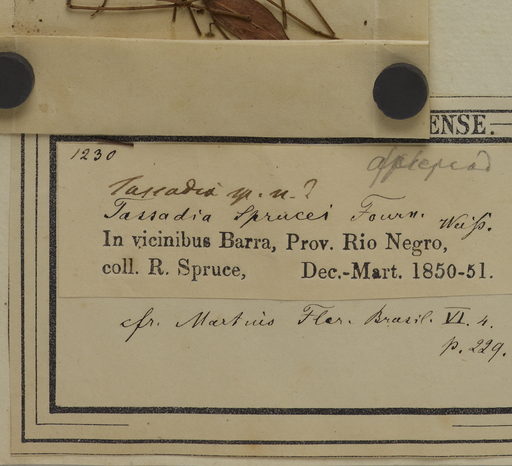 ENSE.
1230
Tassadia sp. n.?
Tassadia Sprucei Fourn.
In vicinibus Barra, Prov. Rio Negro,
coll. R. Spruce, Dec.-Mart. 1850-51.
cfr. Martius Flor. Brasil. VI. 4.
p. 229.